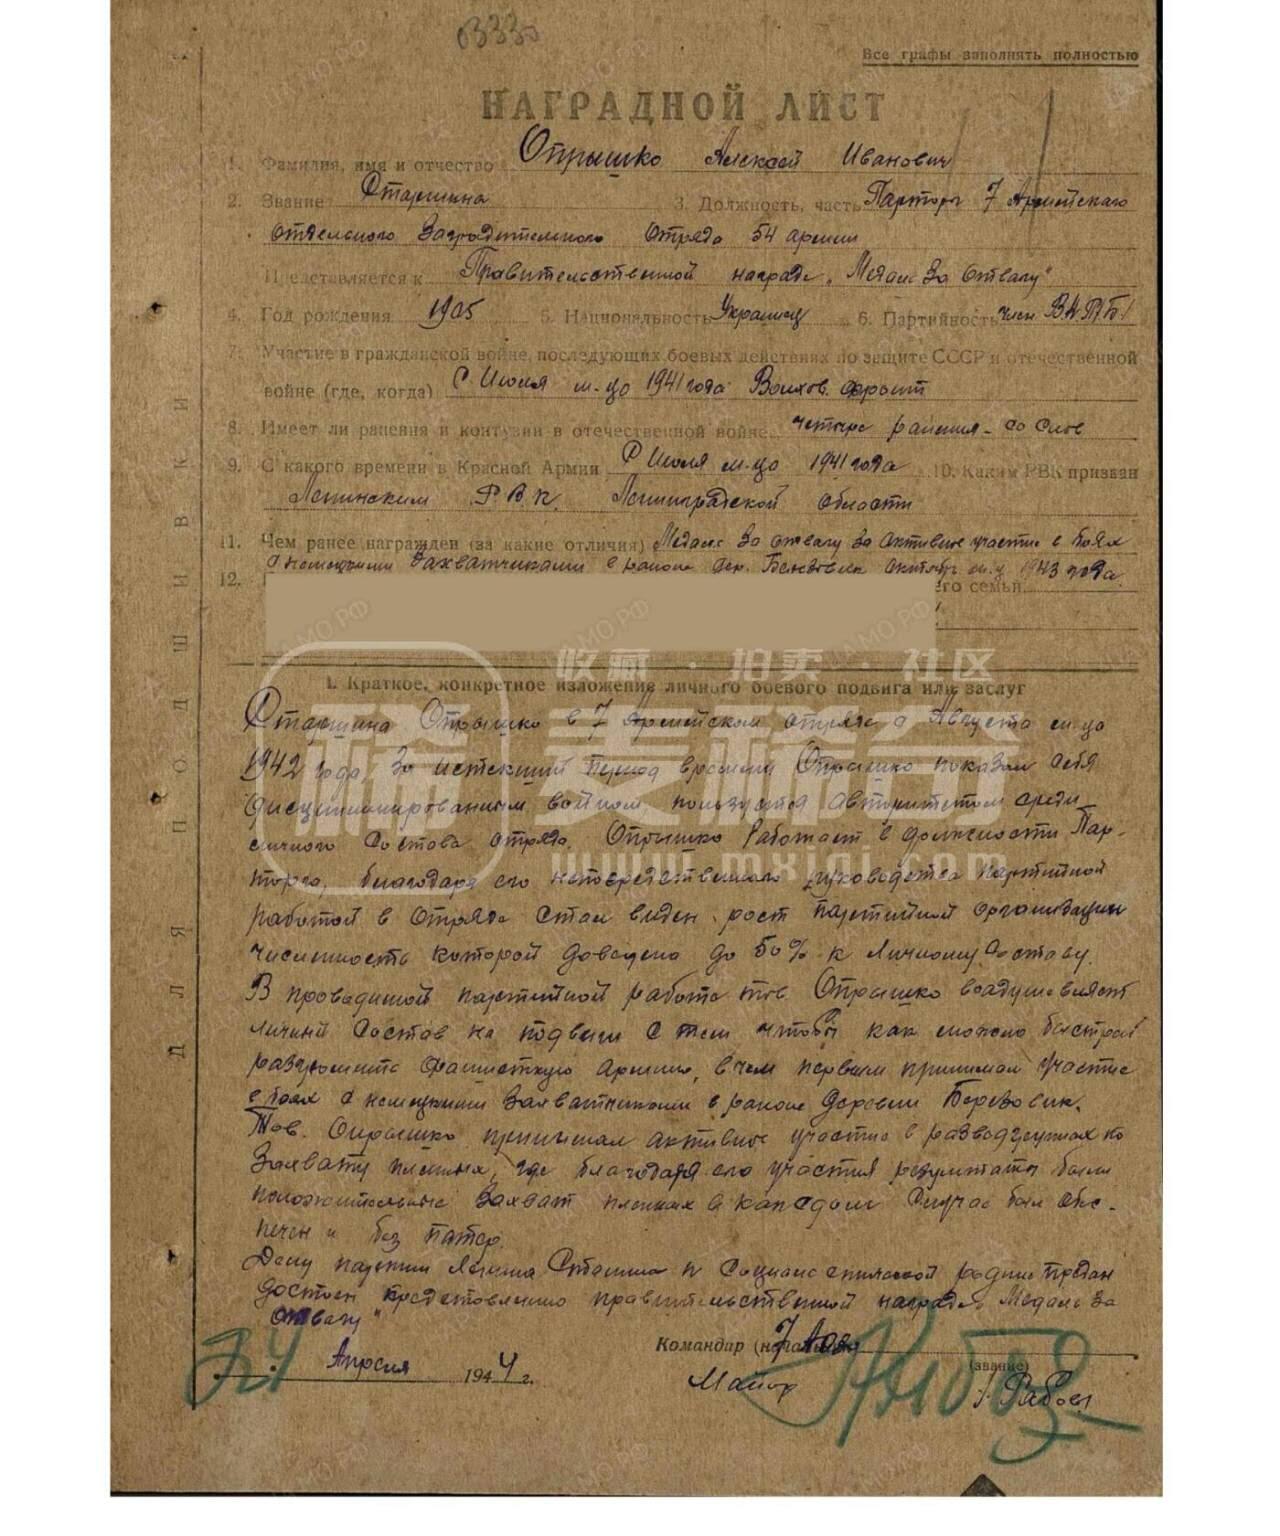 Все графы заполнять полностью
НАГРАДНОЙ ЛИСТ
1. Фамилия, имя и отчество Опрышко Алексей Иванович
2. Звание Старшина 3. Должность, часть Парторг 7 Армейского
отдельного Заградительного отряда 54 армии
Представляется к Правительственной награде „Медаль За отвагу"
4. Год рождения 1905 5. Национальность Украинец 6. Партийность член ВКП(Б)
7. Участие в гражданской войне, последующих боевых действиях по защите СССР и отечественной
войне (где, когда) С Июля м-ца 1941 года Волхов. фронт
8. Имеет ли ранения и контузии в отечественной войне четыре ранения
9. С какого времени в Красной Армии С Июля м-ца 1941 года 10. Каким РВК призван
Ленинским Р.В.К. Ленинградской области
11. Чем ранее награжден (за какие отличия) Медаль За отвагу За активное участие в боях
с немецкими Захватчиками в районе дер. октябрь м-ц 1943 года.
12. его семьи
收藏 · 拍卖 · 社区
I. Краткое, конкретное изложение личного боевого подвига или заслуг
Старшина Опрышко в 7 Армейском отряде с Августа м-ца
1942 года За истекший период времени Опрышко показал себя
дисциплинированным войном пользуется авторитетом среди
личного Состава отряда. Опрышко Работает в должности Пар-
торга, благодаря его непосредственного руководства партийной
работой в отряде стал виден рост партийной организации
численность которой доведена до 50% к личному Составу.
В проводимой партийной работе тов. Опрышко воодушевляет
личный Состав на подвиги с тем чтобы как можно быстрей
разгромить Фашисткую армию, в чем первым принимал участие
в боях с немецкими Захватчиками в районе деревни Березовик.
Тов. Опрышко принимал активное участие в разведгруппах по
Захвату пленных, где благодаря его участия результаты были
положительные Захват пленных в каждом Случае был обес-
печен и без потерь.
Делу партии Ленина Сталина и Социалистической родине предан
достоин представлению правительственной награде „Медаль За
отвагу"
Командир (начальник) 7 Аозо
Апреля 1944 г. (звание)
Майор
麦稀奇
www.mxiqi.com
ДЛЯ ПОДШИВКИ
ЦАМО РФ